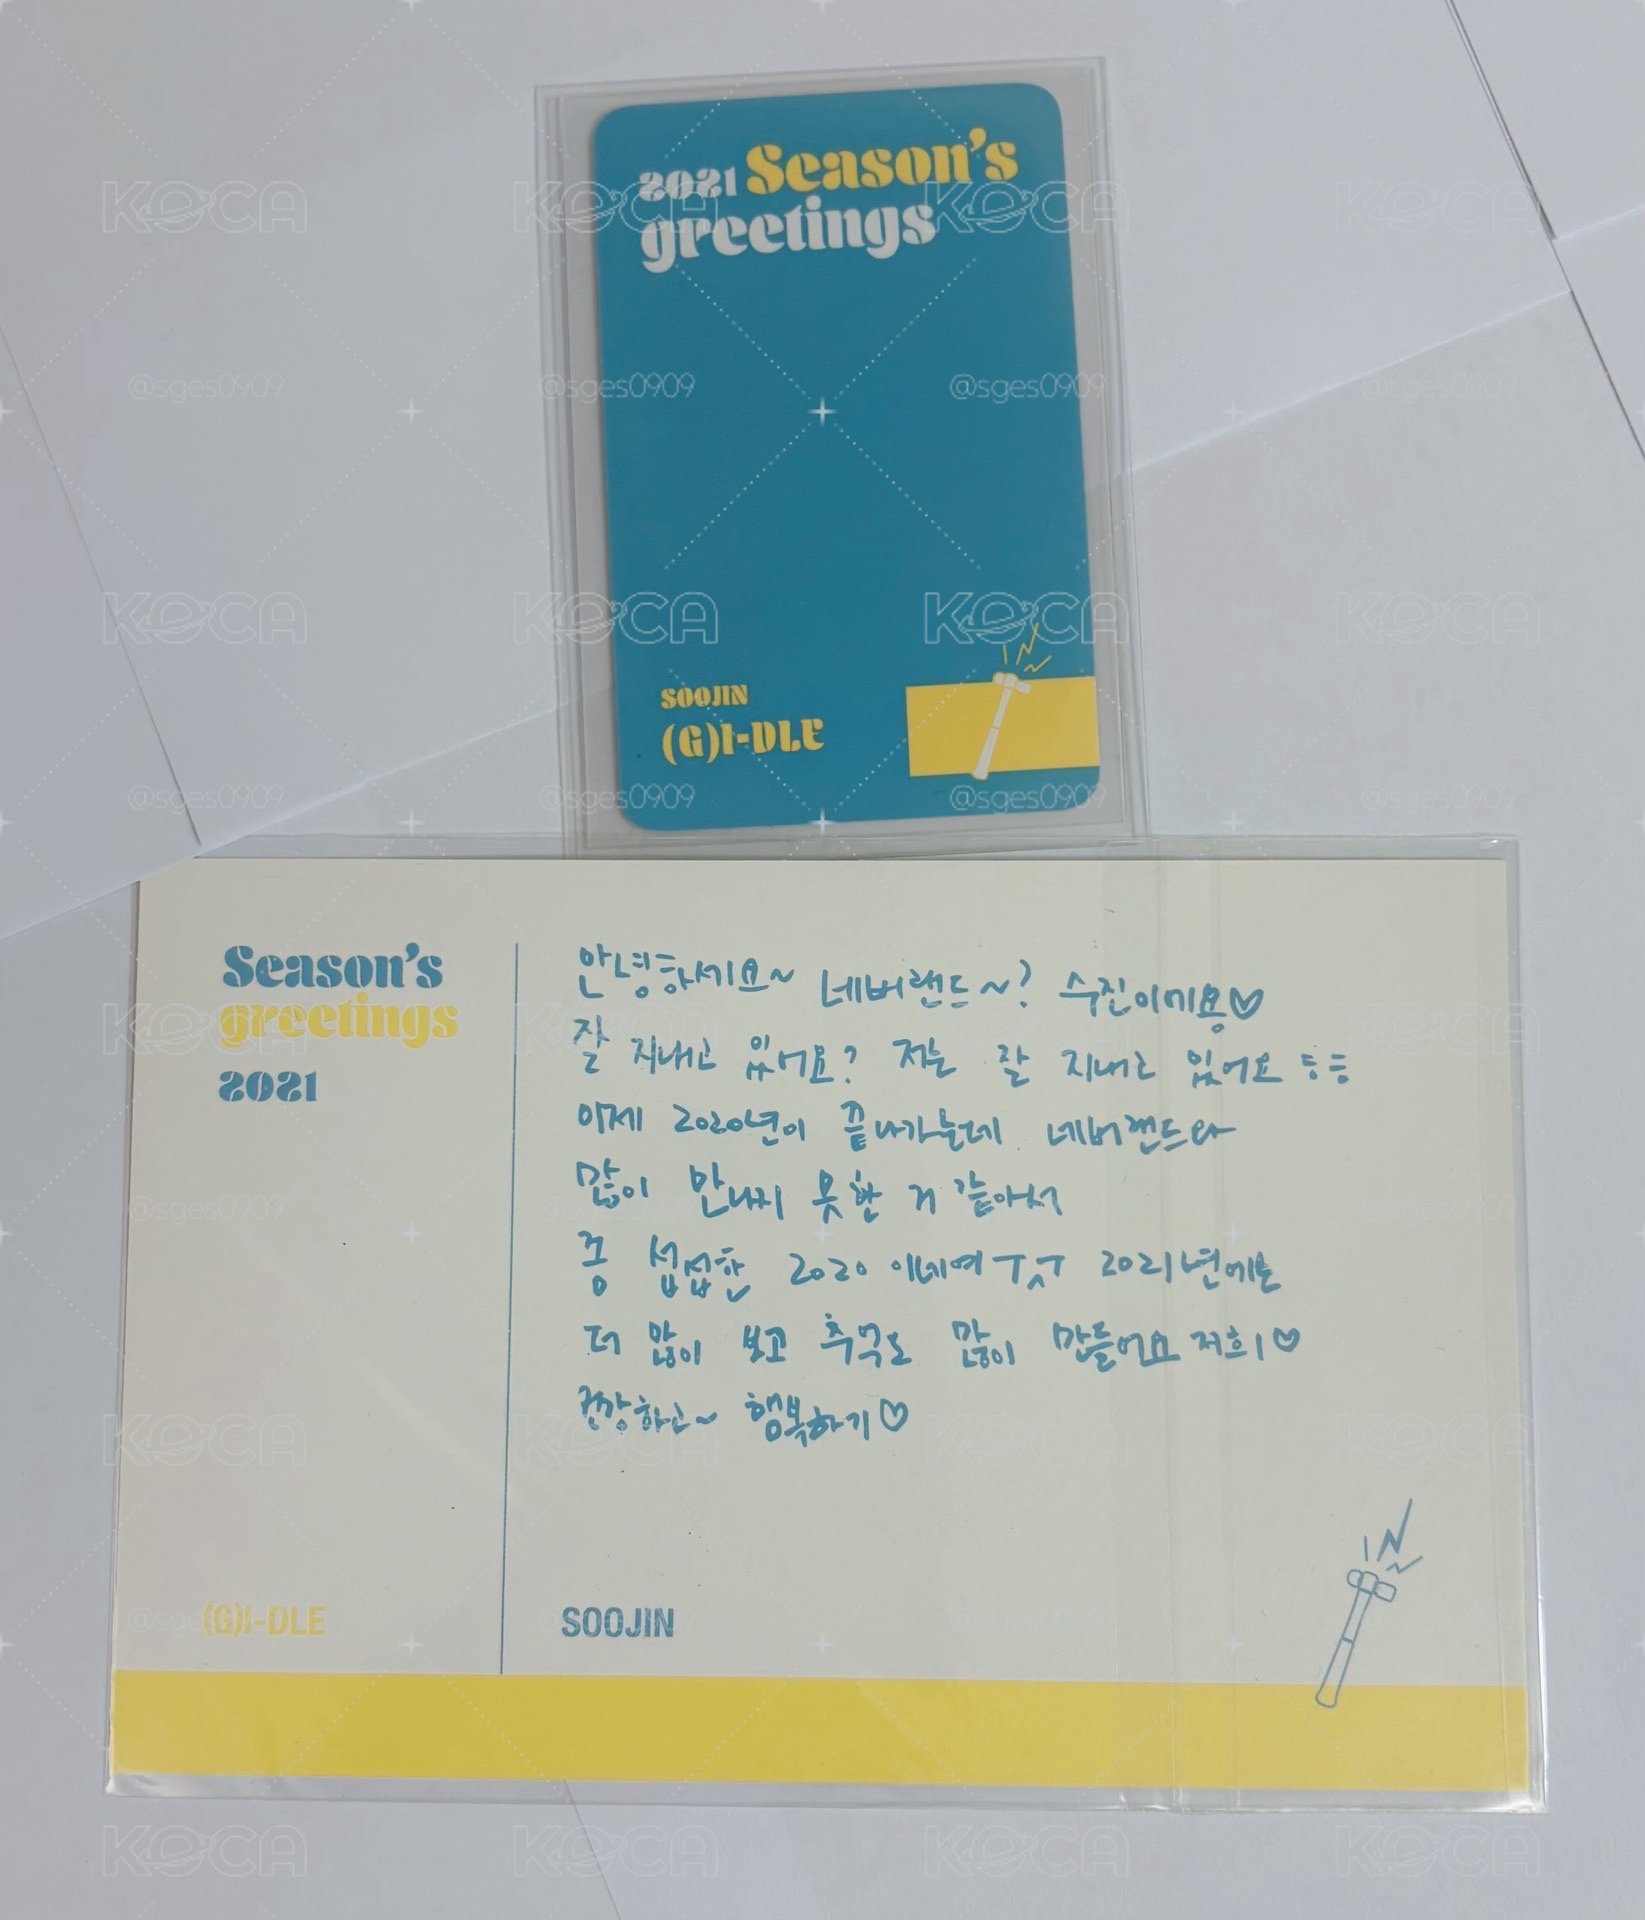 2021 Season's
greetings
SOOJIN
(G)I-DLE
Season's
greetings
2021
안녕하세요~ 네버랜드~? 수진이에용♡
잘 지내고 있어요? 저는 잘 지내고 있어요 ㅎㅎ
이제 2020년이 끝나가는데 네버랜드와
많이 만나지 못한 거 같아서
좀 섭섭한 2020 이네여 ㅜ.ㅜ 2021년에는
더 많이 보고 추억도 많이 만들어요 저희!♡
건강하고~ 행복하기♡
(G)I-DLE
SOOJIN
KOCA
@sges0909